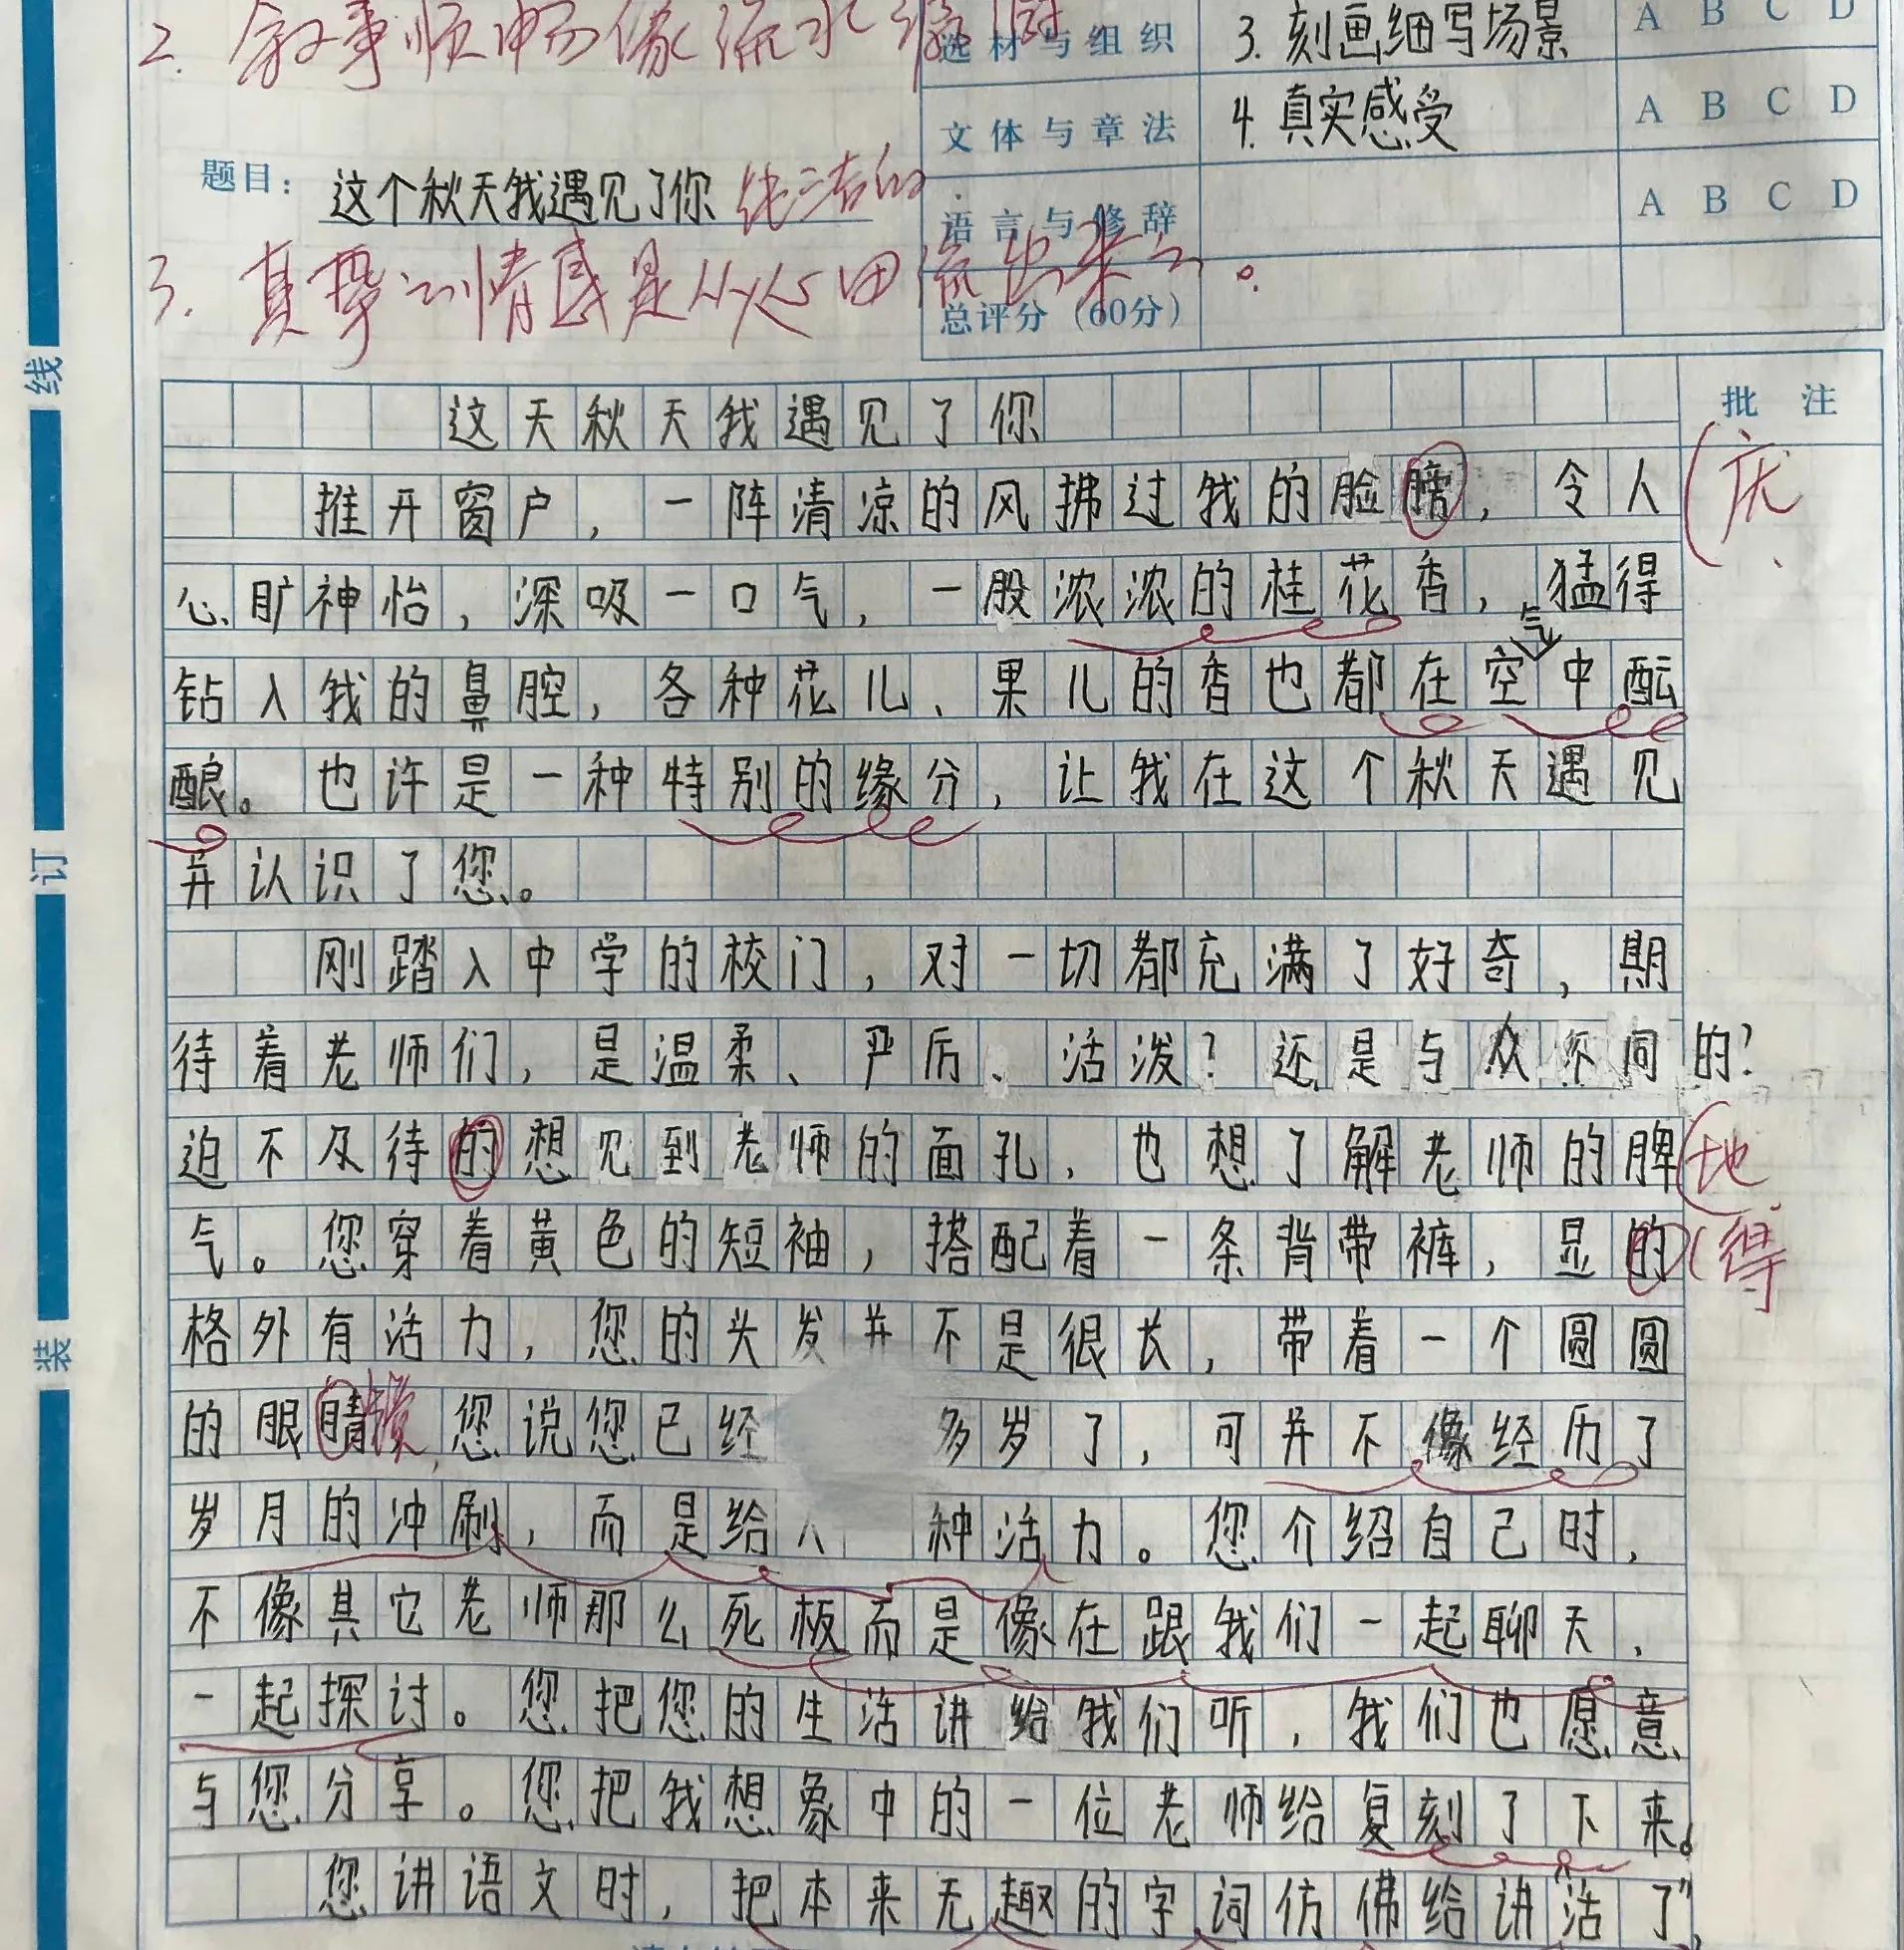 2. 叙事顺畅像流水
选材与组织 3. 刻画细写场景 A B C D
文体与章法 4. 真实感受 A B C D
题目： 这个秋天我遇见了你
语言与修辞 A B C D
3. 真挚的情感是从心田流出来的。
总评分（60分）
批注
这天秋天我遇见了你
推开窗户，一阵清凉的风拂过我的脸膀，令人
心旷神怡，深吸一口气，一股浓浓的桂花香，猛得
钻入我的鼻腔，各种花儿、果儿的香也都在空气中酝
酿。也许是一种特别的缘分，让我在这个秋天遇见
并认识了您。
刚踏入中学的校门，对一切都充满了好奇，期
待着老师们，是温柔、严厉、活泼？还是与众不同的？
迫不及待的想见到老师的面孔，也想了解老师的脾 地
气。您穿着黄色的短袖，搭配着一条背带裤，显的 得
格外有活力，您的头发并不是很长，带着一个圆圆
的眼睛镜，您说您已经 多岁了，可并不像经历了
岁月的冲刷，而是给人 种活力。您介绍自己时，
不像其它老师那么死板而是像在跟我们一起聊天，
一起探讨。您把您的生活讲给我们听，我们也愿意
与您分享。您把我想象中的一位老师给复刻了下来。
您讲语文时，把本来无趣的字词仿佛给讲“活了”，
线
订
装